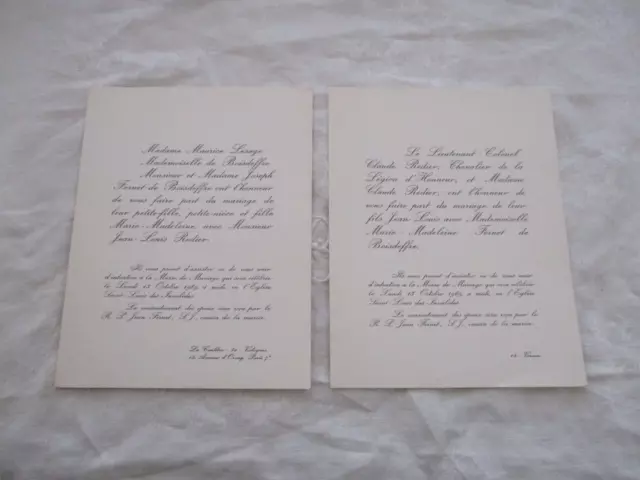 Madame Maurice Lesage
Mademoiselle de Boisdeffre
Monsieur et Madame Joseph
Fernet de Boisdeffre ont l'honneur
de vous faire part du mariage de
leur petite-fille, petite-nièce et fille
Marie-Madeleine avec Monsieur
Jean-Louis Rodier.
Ils vous prient d'assister ou de vous unir
d'intention à la Messe de Mariage qui sera célébrée
le Lundi 18 Octobre 1965 à midi, en l'Eglise
Saint-Louis des Invalides.
Le consentement des époux sera reçu par le
R. P. Jean S.J. cousin de la mariée.
Paris 7e
Le Lieutenant Colonel
Claude Rodier, Chevalier de la
Légion d'Honneur, et Madame
Claude Rodier, ont l'honneur de
vous faire part du mariage de leur
fils Jean-Louis avec Mademoiselle
Marie-Madeleine Fernet de
Boisdeffre.
Ils vous prient d'assister ou de vous unir
d'intention à la Messe de Mariage qui sera célébrée
le Lundi 18 Octobre 1965 à midi, en l'Eglise
Saint-Louis des Invalides.
Le consentement des époux sera reçu par le
R. P. Jean S.J. cousin de la mariée.